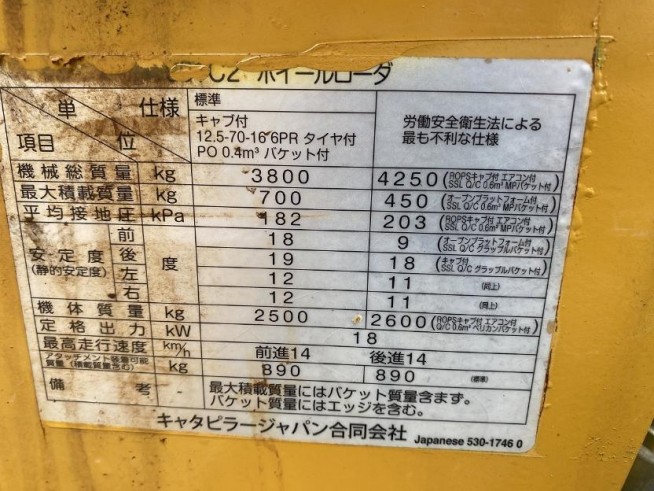 C2 ホイールローダ
単 仕様 標準
キャブ付
12.5-70-16 6PR タイヤ付
PO 0.4m³ バケット付
労働安全衛生法による
最も不利な仕様
項目 位
機械総質量 kg 3800 4250 (ROPSキャブ付 エアコン付 SSL Q/C 0.6m³ MPバケット付)
最大積載質量 kg 700 450 (オープンプラットフォーム付 SSL Q/C 0.6m³ MPバケット付)
平均接地圧 kPa 182 203 (ROPSキャブ付 エアコン付 SSL Q/C 0.6m³ MPバケット付)
安定度 (静的安定度) 度
前 18 9 (オープンプラットフォーム付 SSL Q/C グラップルバケット付)
後 19 18 (キャブ付 SSL Q/C グラップルバケット付)
左 12 11 (同上)
右 12 11 (同上)
機体質量 kg 2500 2600 (ROPSキャブ付 エアコン付 Q/C 0.6m³ ペリカンバケット付)
定格出力 kW 18
最高走行速度 km/h 前進14 後進14
アタッチメント装着可能質量(積載質量含む) kg 890 890 (標準)
備考 最大積載質量にはバケット質量含まず。
バケット質量にはエッジを含む。
キャタピラージャパン合同会社 Japanese 530-1746 0